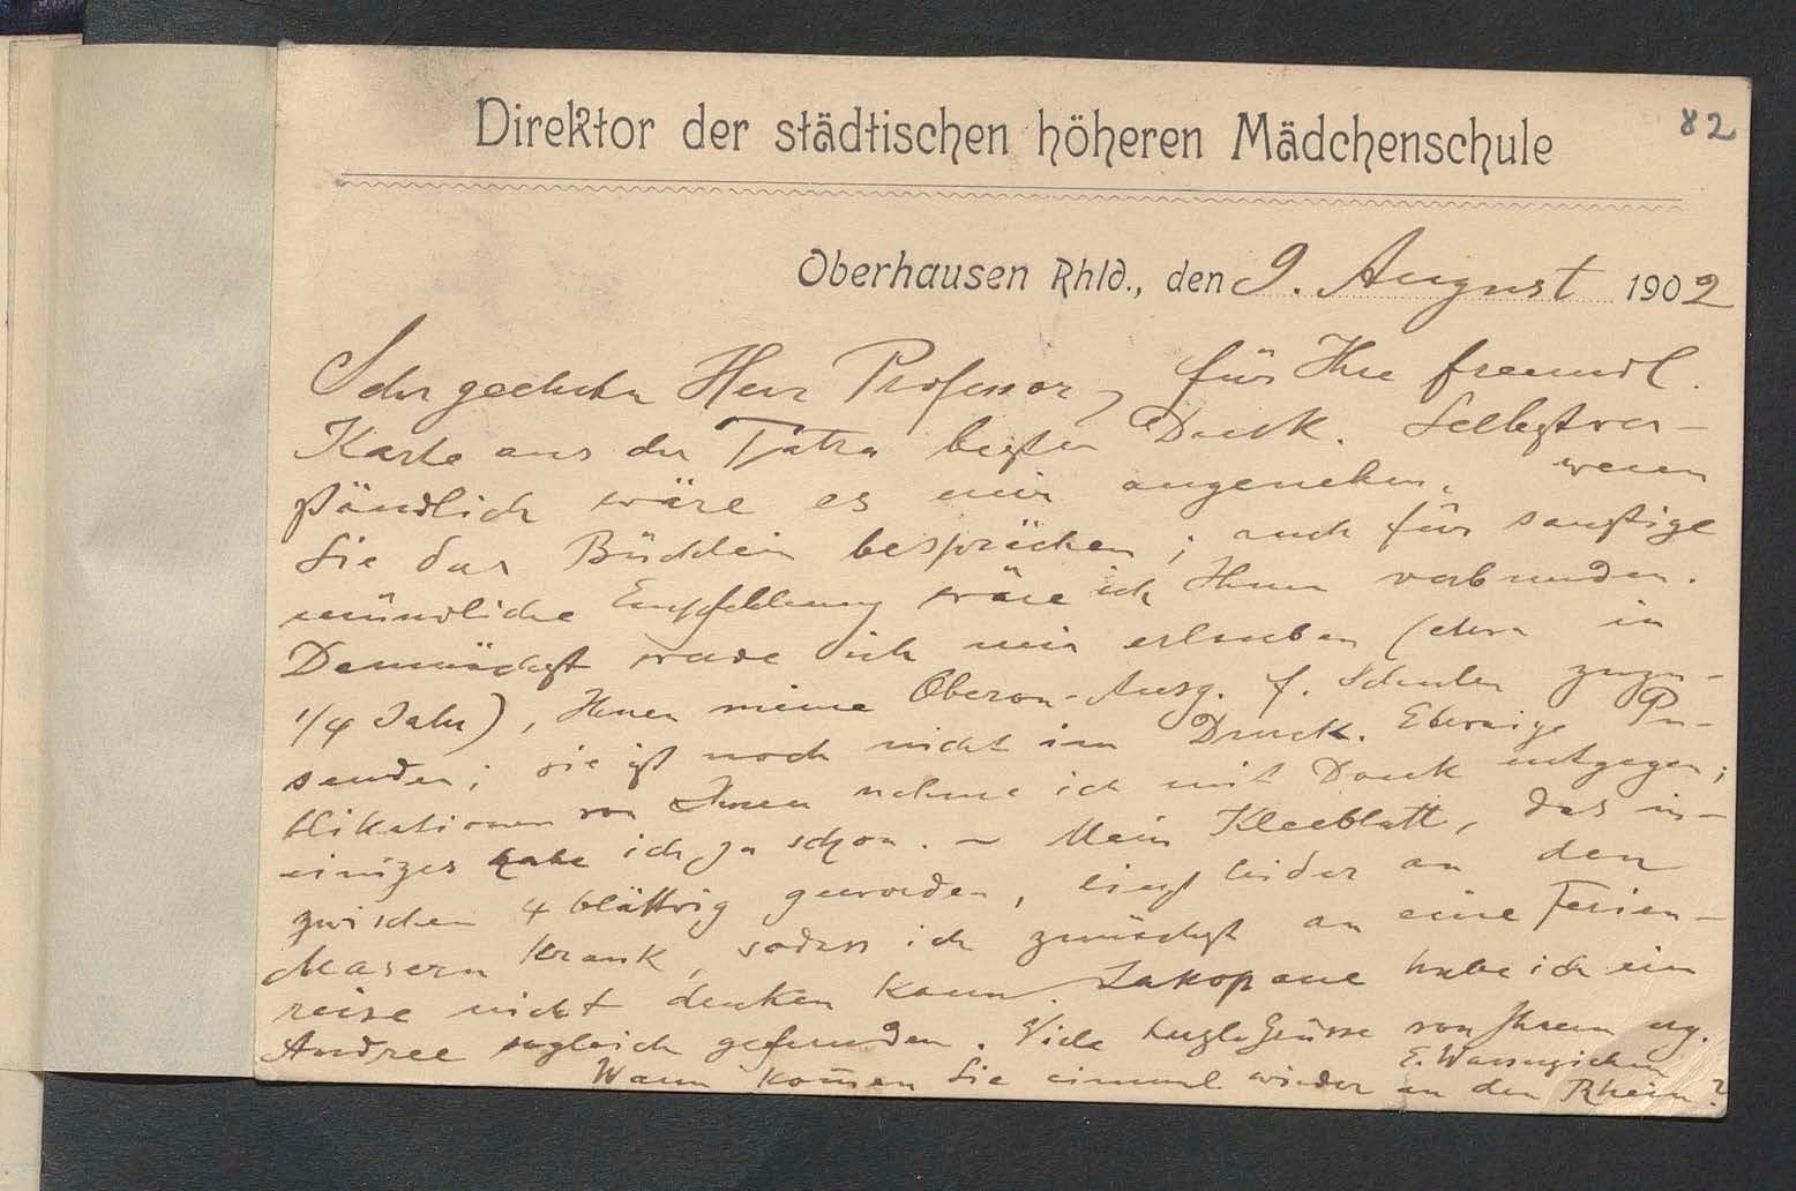 82
Direktor der städtischen höheren Mädchenschule
Oberhausen Rhld., den 9. August 1902
Sehr geehrter Herr Professor, für Ihre freundl.
Karte aus der Tatra besten Dank. Selbstver-
ständlich wäre es mir angenehm, wenn
Sie das Büchlein besprächen; auch für sonstige
mündliche Empfehlung wäre ich Ihnen verbunden.
Demnächst werde ich mir erlauben (etwa in
1/4 Jahr), Ihnen meine Oberon-Ausg. f. Schulen zuzu-
senden; sie ist noch nicht im Druck. Etwaige Pu-
blikationen von Ihnen nehme ich mit Dank entgegen;
einiges habe ich ja schon. – Mein Kleeblatt, das in-
zwischen 4 blättrig geworden, liegt leider an den
Masern krank, sodass ich zunächst an eine Ferien-
reise nicht denken kann. Zakopane habe ich im
Andree sogleich gefunden. Viele herzl. Grüsse von Ihrem erg.
E.
Wann kom̄en Sie einmal wieder an den Rhein?